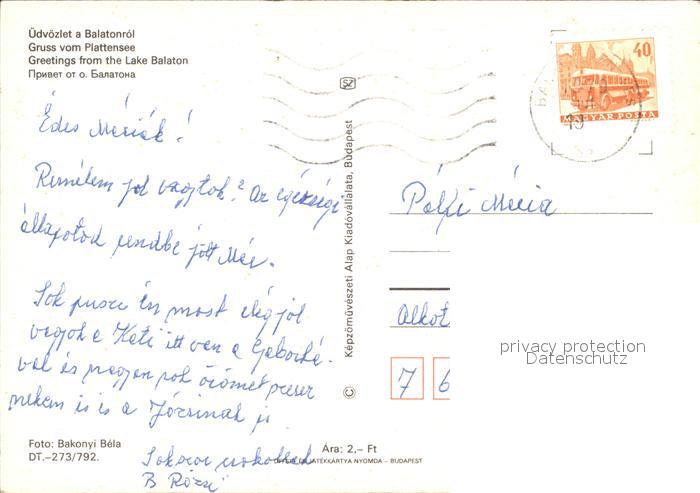 Üdvözlet a Balatonról
Gruss vom Plattensee
Greetings from the Lake Balaton
Привет от о. Балатона
40
MAGYAR POSTA
Édes Máriák!
Remélem jól vagytok? Az egészségi
állapotod rendbe jött Már.
Sok puszi én most elég jól
vagyok a Kati itt van a Gaborká-
val és nagyon sok örömet szerez
nekem is is a Józsinak is.
Sokszor csókollak
B Rózsi
Pálfi Mária
Alkot
7 6
privacy protection
Datenschutz
Képzőművészeti Alap Kiadóvállalata, Budapest
©
Foto: Bakonyi Béla
DT.–273/792.
Ára: 2,– Ft
JÁTÉKKÁRTYA NYOMDA – BUDAPEST